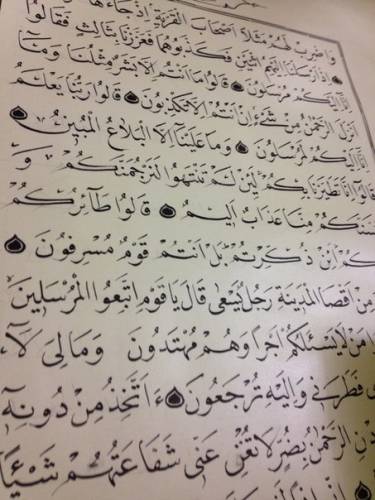 وَاضْرِبْ لَهُمْ مَثَلًا اَصْحَابَ الْقَرْيَةِ اِذْ جَاءَهَا
اِذْ اَرْسَلْنَا اِلَيْهِمُ اثْنَيْنِ فَكَذَّبُوهُمَا فَعَزَّزْنَا بِثَالِثٍ فَقَالُوا
اِنَّا اِلَيْكُمْ مُرْسَلُونَ قَالُوا مَا اَنْتُمْ اِلَّا بَشَرٌ مِثْلُنَا وَمَا
اَنْزَلَ الرَّحْمٰنُ مِنْ شَيْءٍ اِنْ اَنْتُمْ اِلَّا تَكْذِبُونَ قَالُوا رَبُّنَا يَعْلَمُ
اِنَّا اِلَيْكُمْ لَمُرْسَلُونَ وَمَا عَلَيْنَا اِلَّا الْبَلَاغُ الْمُبِينُ
قَالُوا اِنَّا تَطَيَّرْنَا بِكُمْ لَئِنْ لَمْ تَنْتَهُوا لَنَرْجُمَنَّكُمْ وَ
مِنَّا عَذَابٌ اَلِيمٌ قَالُوا طَائِرُكُمْ
اَئِنْ ذُكِّرْتُمْ بَلْ اَنْتُمْ قَوْمٌ مُسْرِفُونَ
مِنْ اَقْصَا الْمَدِينَةِ رَجُلٌ يَسْعٰى قَالَ يَا قَوْمِ اتَّبِعُوا الْمُرْسَلِينَ
مَنْ لَا يَسْئَلُكُمْ اَجْرًا وَهُمْ مُهْتَدُونَ وَمَا لِيَ لَا
فَطَرَنِي وَاِلَيْهِ تُرْجَعُونَ ءَاَتَّخِذُ مِنْ دُونِهِ
الرَّحْمٰنُ بِضُرٍّ لَا تُغْنِ عَنِّي شَفَاعَتُهُمْ شَيْئًا